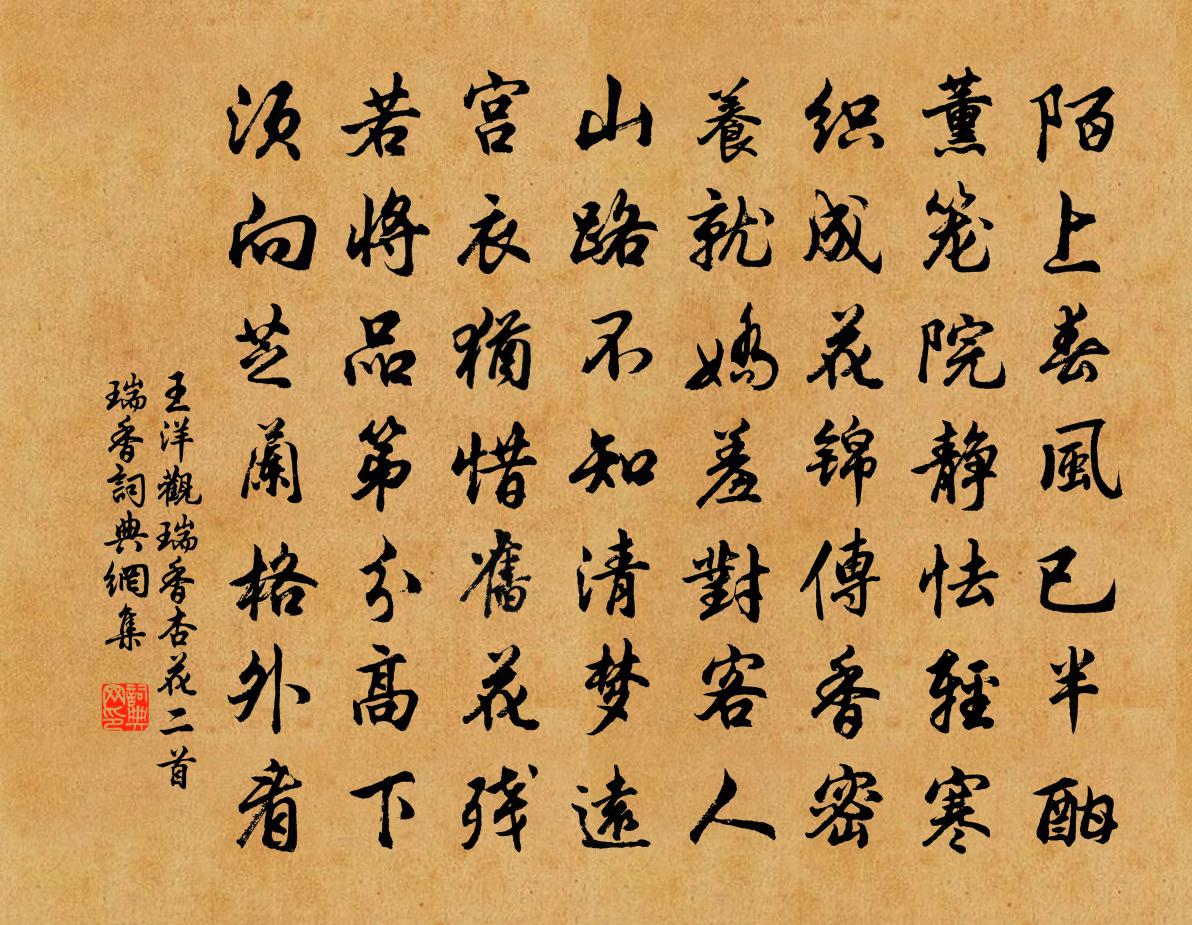 陌上春風已半酣
薰笼院静怯輕寒
织成花锦傳香密
養就嬌羞對客人
山路不知清梦遠
宫衣猶惜舊花残
若将品第分高下
须向芝蘭格外看
王洋觀瑞香杏花二首
瑞香詞典網集
詞典网印